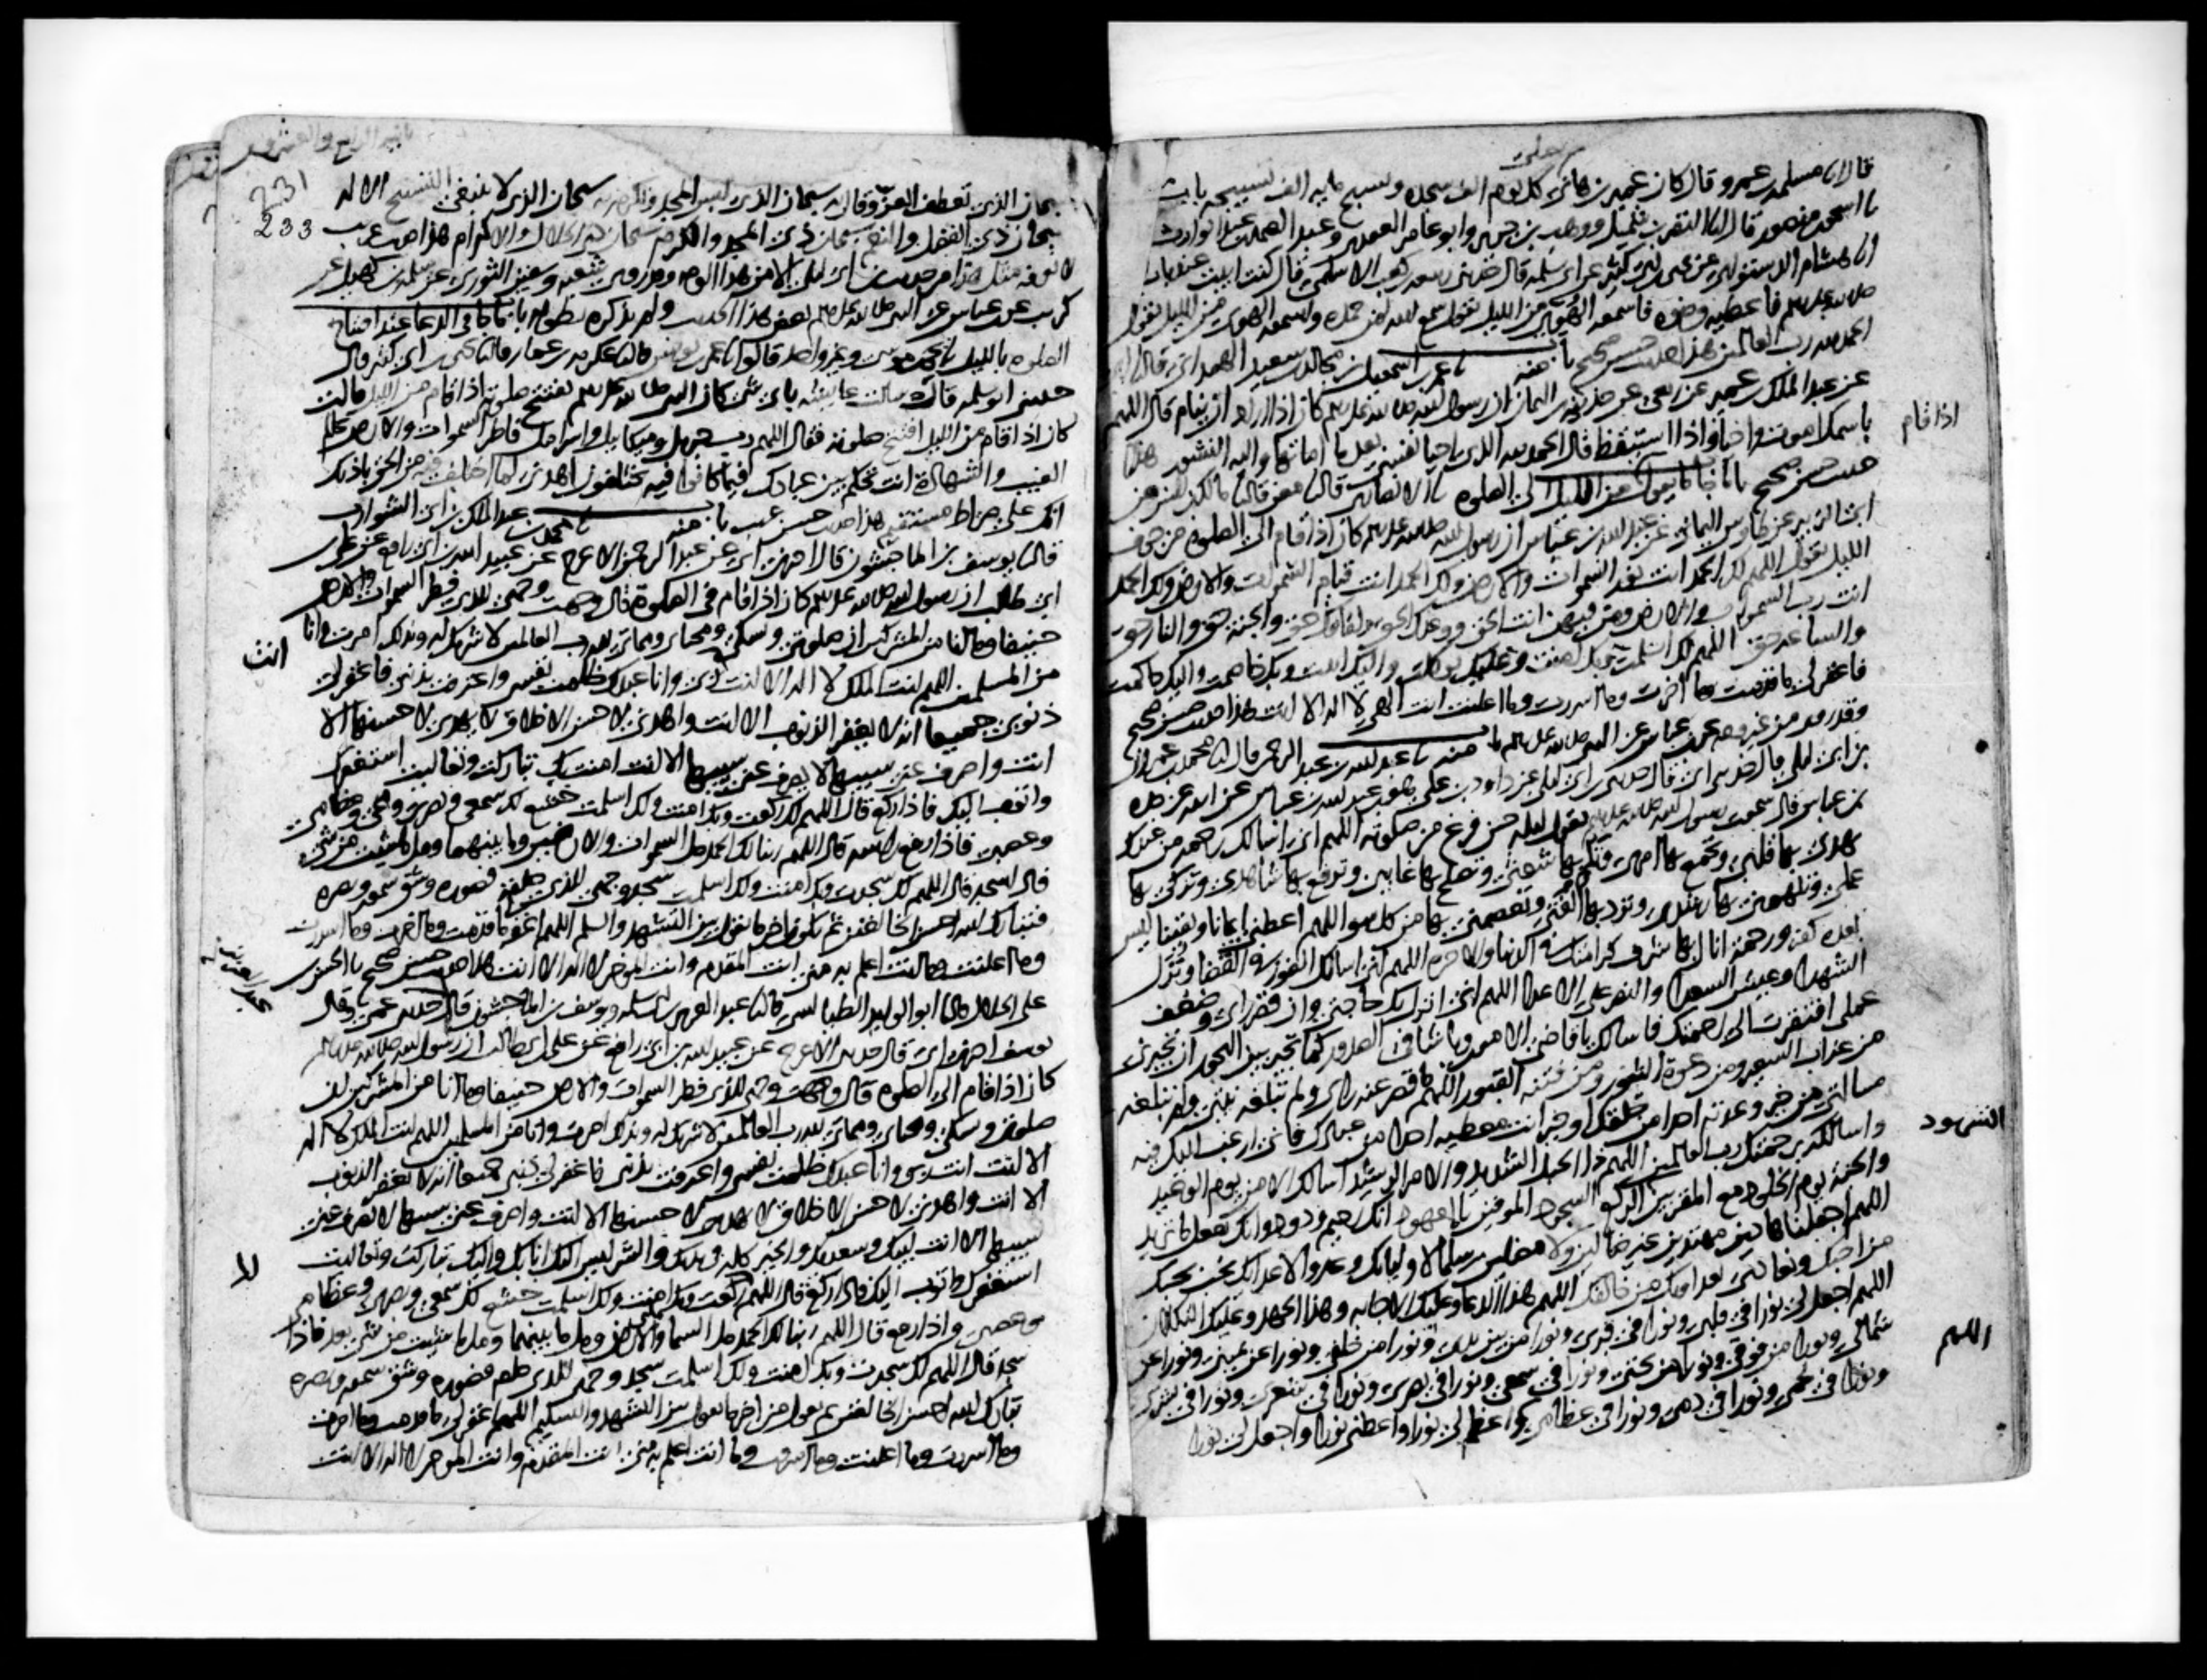 قال نا مسلمة بن عمرو قال كان عمير بن هانئ كل يوم الف سجدة ويسبح مائة الف تسبيحة باب
نا اسحق بن منصور قال انا النضر بن شميل ووهب بن جرير وابو عامر العقدي وعبد الصمد بن عبد الوارث
انا هشام الدستوائي عن يحيى بن ابي كثير عن ابي سلمة قال حدثني ربيعة بن كعب الاسلمي قال كنت ابيت عند باب
صلى الله عليه وسلم فاعطيه وضوه فاسمعه الهوي من الليل يقول سمع الله لمن حمده واسمعه الهوي من الليل يقول
الحمد لله رب العالمين هذا حديث حسن صحيح باب منه نا عمر بن اسمعيل بن مجالد بن سعيد الهمداني قال نا ابي
عن عبد الملك بن عمير عن ربعي عن حذيفة بن اليمان ان رسول الله صلى الله عليه وسلم كان اذا اراد ان ينام قال اللهم
باسمك اموت واحيا واذا استيقظ قال الحمد لله الذي احيا نفسي بعد ما اماتها واليه النشور هذا
اذا قام
حديث حسن صحيح باب ما جا ما يقول من الليل الى الصلوة نا الانصاري قال نا معن قال نا مالك بن انس عن
ابي الزبير عن طاوس اليماني عن عبد الله بن عباس ان رسول الله صلى الله عليه وسلم كان اذا قام الى الصلوة من جوف
الليل يقول اللهم لك الحمد انت نور السموات والارض ولك الحمد انت قيام السموات والارض ولك الحمد
انت رب السموات والارض ومن فيهن انت الحق ووعدك الحق ولقاوك حق والجنة حق والنار حق
والساعة حق اللهم لك اسلمت وبك امنت وعليك توكلت واليك انبت وبك خاصمت واليك حاكمت
فاغفر لي ما قدمت وما اخرت وما اسررت وما اعلنت انت الهي لا اله الا انت هذا حديث حسن صحيح
وقد روي من غير وجه عن ابن عباس عن النبي صلى الله عليه وسلم باب منه نا عبد الله بن عبد الرحمن قال انا محمد بن عمران
بن ابي ليلى قال حدثني ابي قال حدثني ابن ابي ليلى عن داود بن علي هو بن عبد الله بن عباس عن ابيه عن جده
بن عباس قال سمعت رسول الله صلى الله عليه وسلم يقول ليلة حين فرغ من صلوته اللهم اني اسالك رحمة من عندك
تهدي بها قلبي وتجمع بها امري وتلم بها شعثي وتصلح بها غايبي وترفع بها شاهدي وتزكي بها
عملي وتلهمني بها رشدي وترد بها الفتي وتعصمني بها من كل سوا اللهم اعطني ايمانا ويقينا ليس
بعده كفر ورحمة انال بها شرف كرامتك في الدنيا والاخرة اللهم اني اسالك الفوز في القضا ونزل
الشهدا وعيش السعدا والنصر على الاعدا اللهم اني انزل بك حاجتي وان قصر راي وضعف
عملي افتقرت الى رحمتك فاسالك يا قاضي الامور ويا شافي الصدور كما تجير بين البحور ان تجيرني
من عذاب السعير ومن دعوة الثبور ومن فتنة القبور اللهم ما قصر عنه راي ولم تبلغه نيتي ولم تبلغه
مسالتي من خير وعدته احدا من خلقك او خير انت معطيه احدا من عبادك فاني ارغب اليك فيه
واسالكه برحمتك رب العالمين اللهم ذا الحبل الشديد والامر الرشيد اسالك الامن يوم الوعيد
الشهود
والجنة يوم الخلود مع المقربين الركع السجود الموفين بالعهود انك رحيم ودود وانك تفعل ما تريد
اللهم اجعلنا هادين مهتدين غير ضالين ولا مضلين سلما لاوليائك وعدوا لاعدائك نحب بحبك
من احبك ونعادي بعداوتك من خالفك اللهم هذا الدعا وعليك الاجابة وهذا الجهد وعليك التكلان
اللهم اجعل لي نورا في قلبي ونورا في قبري ونورا من بين يدي ونورا من خلفي ونورا عن يميني ونورا عن
شمالي ونورا من فوقي ونورا من تحتي ونورا في سمعي ونورا في بصري ونورا في شعري ونورا في بشري
اللهم
ونورا في لحمي ونورا في دمي ونورا في عظامي اعظم لي نورا واعطني نورا واجعل لي نورا
231
233
سبحان الذي تعطف العز وقال به سبحان الذي لبس المجد وتكرم به سبحان الذي لا ينبغي التسبيح الا له
سبحان ذي الفضل والنعم سبحان ذي المجد والكرم سبحان ذي الجلال والاكرام هذا حديث غريب
لا نعرفه مثل هذا من حديث ابن ابي ليلى الا من هذا الوجه وقد روى شعبة وسفين الثوري عن سلمة بن كهيل عن
كريب عن ابن عباس عن النبي صلى الله عليه وسلم بعض هذا الحديث ولم يذكره بطوله باب ما جا في الدعا عند افتتاح
الصلوة بالليل نا يحيى بن موسى وغير واحد قالوا نا عمر بن يونس قال نا عكرمة بن عمار قال نا يحيى بن ابي كثير قال
حدثني ابو سلمة قال سالت عايشة باي شي كان النبي صلى الله عليه وسلم يفتتح صلوته اذا قام من الليل قالت
كان اذا قام من الليل افتتح صلوته فقال اللهم رب جبريل وميكايل واسرافيل فاطر السموات والارض عالم
الغيب والشهادة انت تحكم بين عبادك فيما كانوا فيه يختلفون اهدني لما اختلف فيه من الحق باذنك
انك على صراط مستقيم هذا حديث حسن غريب باب منه نا محمد بن عبد الملك بن ابي الشوارب
قال نا يوسف بن الماجشون قال اخبرني ابي عن عبد الرحمن الاعرج عن عبيد الله بن ابي رافع عن علي بن
ابي طالب ان رسول الله صلى الله عليه وسلم كان اذا قام في الصلوة قال وجهت وجهي للذي فطر السموات والارض
حنيفا وما انا من المشركين ان صلوتي ونسكي ومحياي ومماتي لله رب العالمين لا شريك له وبذلك امرت وانا
من المسلمين اللهم انت الملك لا اله الا انت ربي وانا عبدك ظلمت نفسي واعترفت بذنبي فاغفر لي
انت
ذنوبي جميعا انه لا يغفر الذنوب الا انت واهدني لاحسن الاخلاق لا يهدي لاحسنها الا
انت واصرف عني سيئها لا يصرف عني سيئها الا انت امنت بك تباركت وتعاليت استغفرك
واتوب اليك فاذا ركع قال اللهم لك ركعت وبك امنت ولك اسلمت خشع لك سمعي وبصري ومخي وعظامي
وعصبي فاذا رفع راسه قال اللهم ربنا لك الحمد مل السموات والارضين وما بينهما ومل ما شيت من شي
فاذا سجد قال اللهم لك سجدت وبك امنت ولك اسلمت سجد وجهي للذي خلقه فصوره وشق سمعه وبصره
فتبارك الله احسن الخالقين ثم يكون اخر ما يقول بين التشهد والسلم اللهم اغفر لي ما قدمت وما اخرت وما اسررت
وما اعلنت وما انت اعلم به مني انت المقدم وانت الموخر لا اله الا انت هذا حديث حسن صحيح نا الحسن بن
علي الخلال قال نا ابو الوليد الطيالسي قال نا عبد العزيز بن ابي سلمة ويوسف بن الماجشون قال حدثني عمي وقال
يوسف اخبرني ابي قال حدثني الاعرج عن عبيد الله بن ابي رافع عن علي بن ابي طالب ان رسول الله صلى الله عليه وسلم
كان اذا قام الى الصلوة قال وجهت وجهي للذي فطر السموات والارض حنيفا وما انا من المشركين ان
صلوتي ونسكي ومحياي ومماتي لله رب العالمين لا شريك له وبذلك امرت وانا من المسلمين اللهم انت الملك لا اله
الا انت انت ربي وانا عبدك ظلمت نفسي واعترفت بذنبي فاغفر لي ذنبي جميعا انه لا يغفر الذنوب
الا انت واهدني لاحسن الاخلاق لا يهدي لاحسنها الا انت واصرف عني سيئها لا يصرف عني
سيئها الا انت لبيك وسعديك والخير كله في يديك والشر ليس اليك انا بك واليك تباركت وتعاليت
استغفرك واتوب اليك فاذا ركع قال اللهم لك ركعت وبك امنت ولك اسلمت خشع لك سمعي وبصري وعظامي
وعصبي واذا رفع قال اللهم ربنا لك الحمد مل السما والارض وما بينهما ومل ما شيت من شي بعد فاذا
سجد قال اللهم لك سجدت وبك امنت ولك اسلمت سجد وجهي للذي خلقه فصوره وشق سمعه وبصره
تبارك الله احسن الخالقين ثم يقول من اخر ما يقول بين التشهد والتسليم اللهم اغفر لي ما قدمت وما اخرت
وما اسررت وما اعلنت وما اسرفت وما انت اعلم به مني انت المقدم وانت الموخر لا اله الا انت